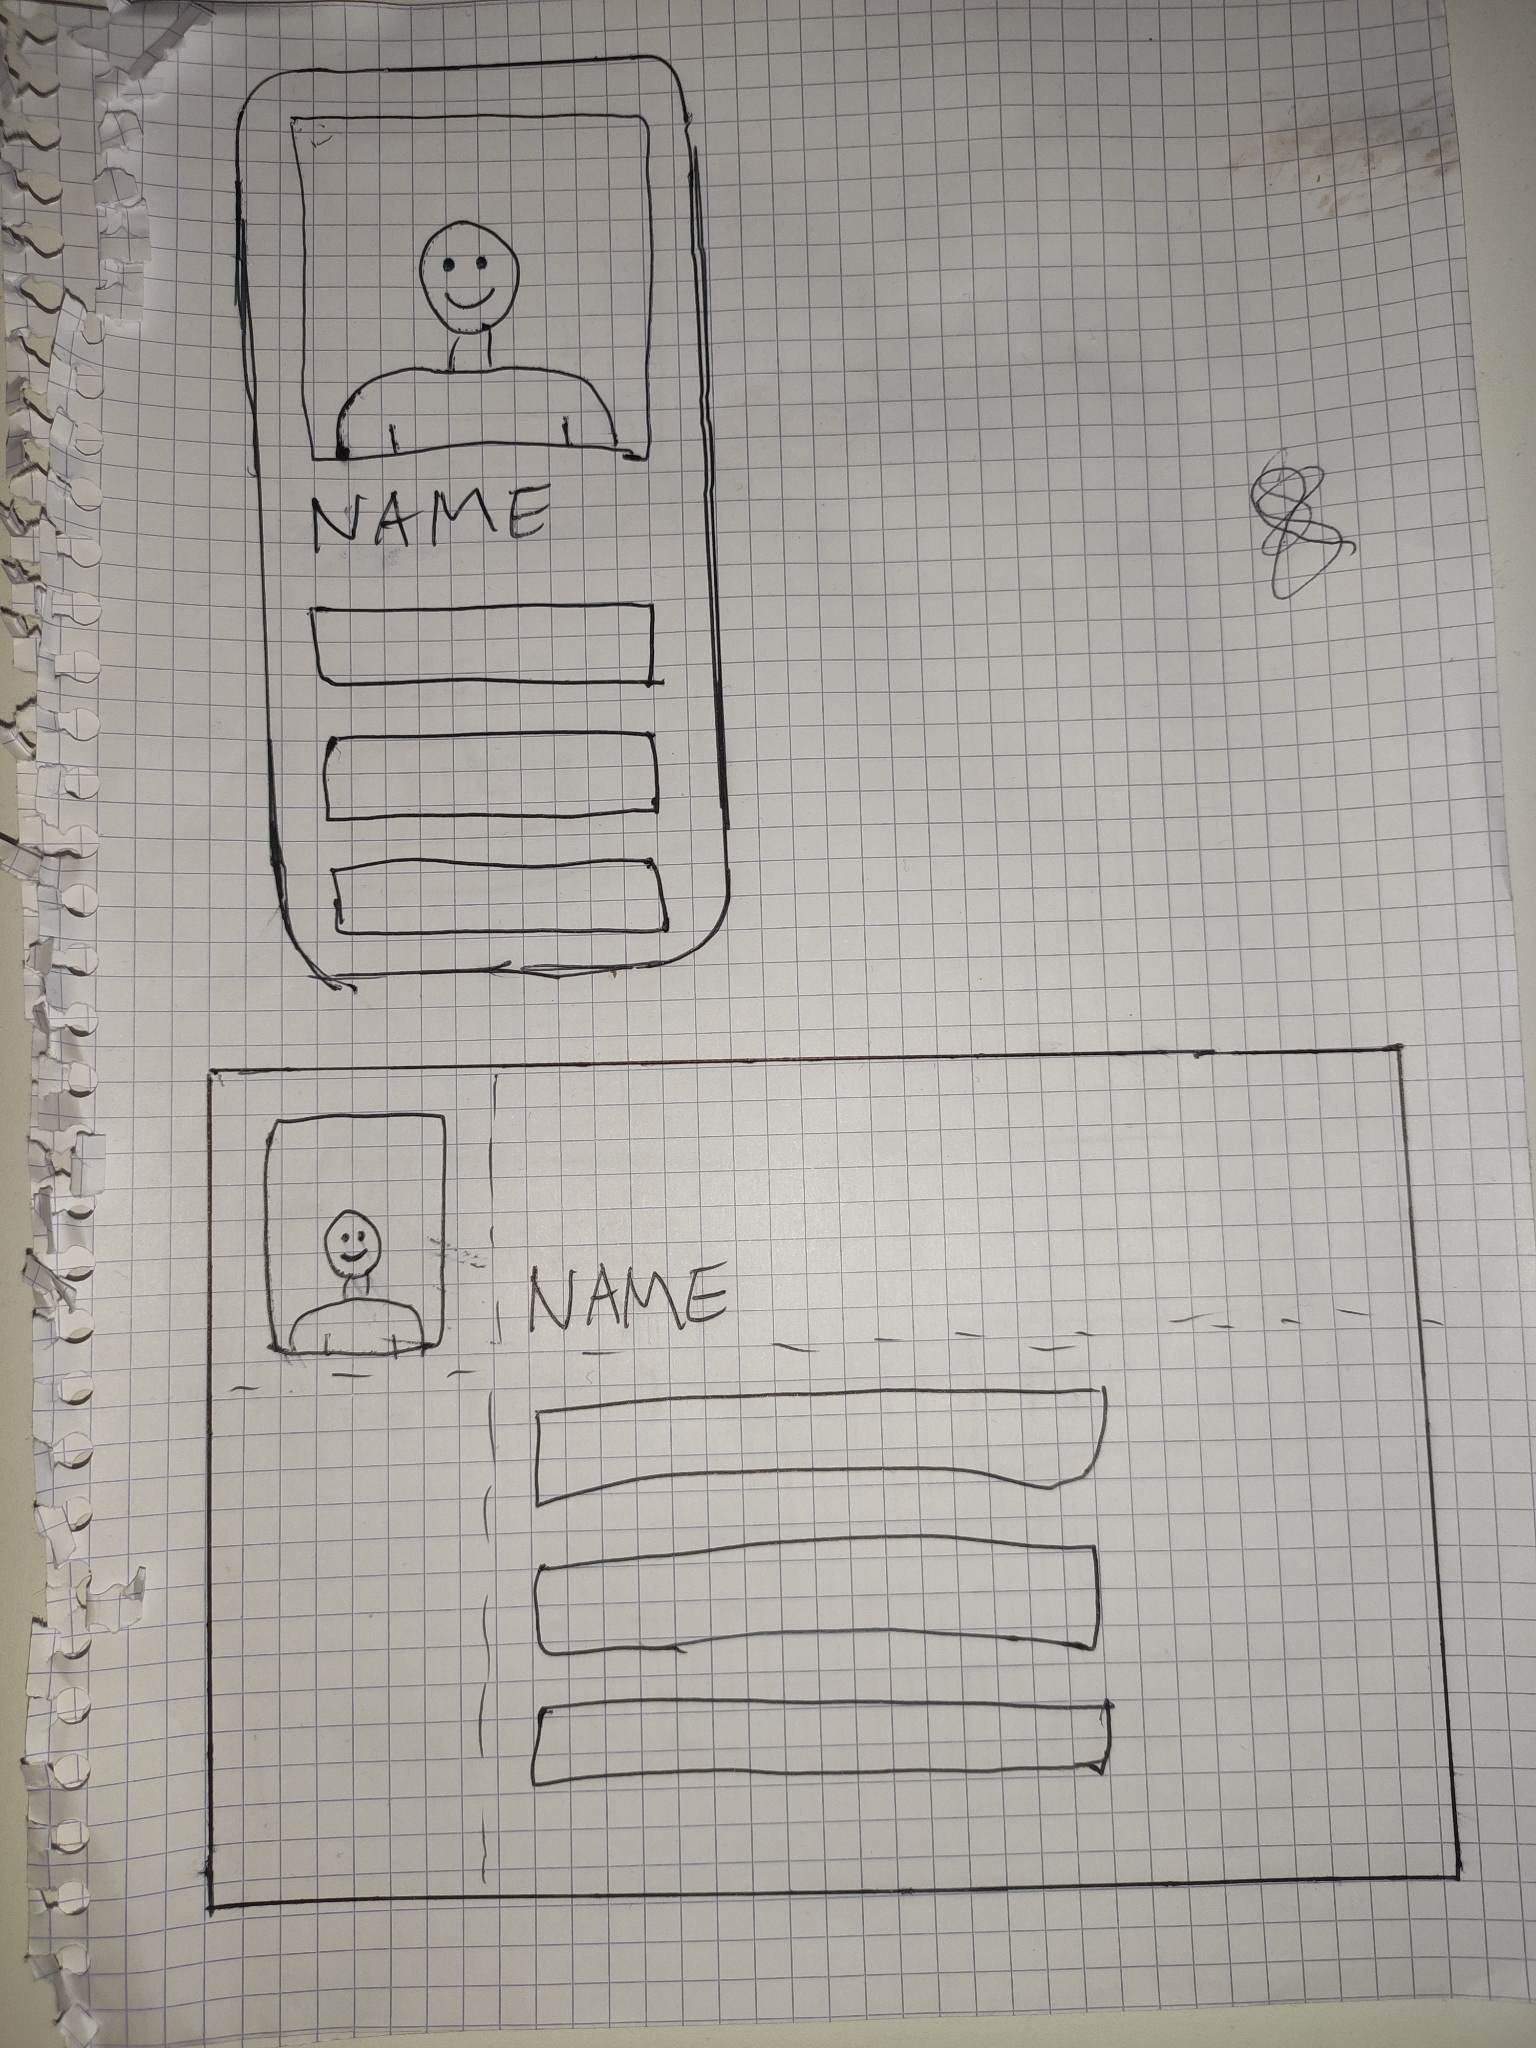 NAME
NAME